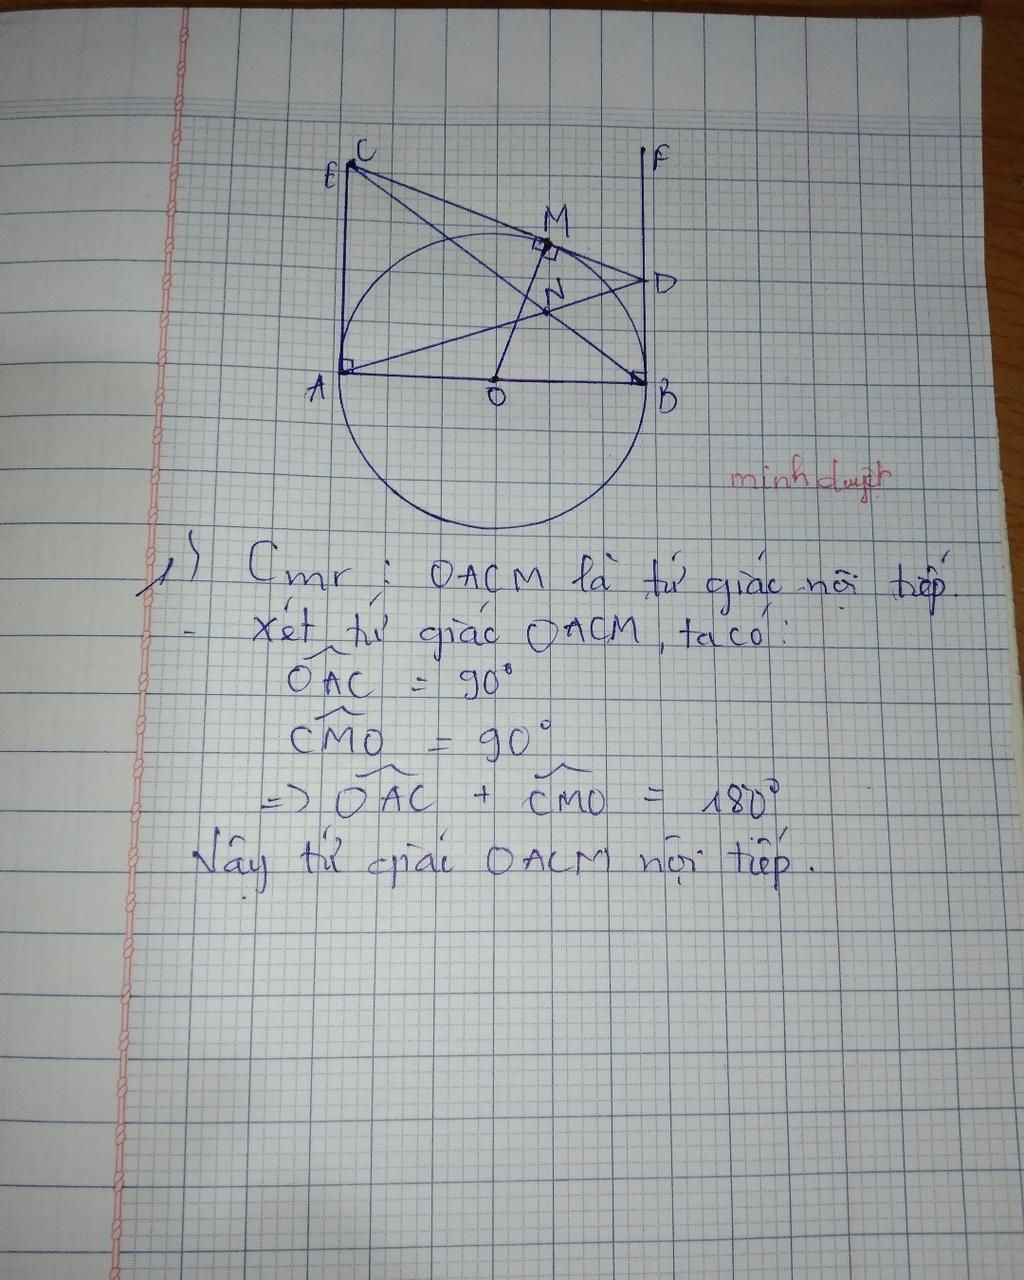 C
E
F
M
D
N
A
O
B
minh duyệt
1) Cmr : OACM là tứ giác nội tiếp.
- Xét tứ giác OACM, ta có :
OAC = 90°
CMO = 90°
=> OAC + CMO = 180°
Vậy tứ giác OACM nội tiếp.